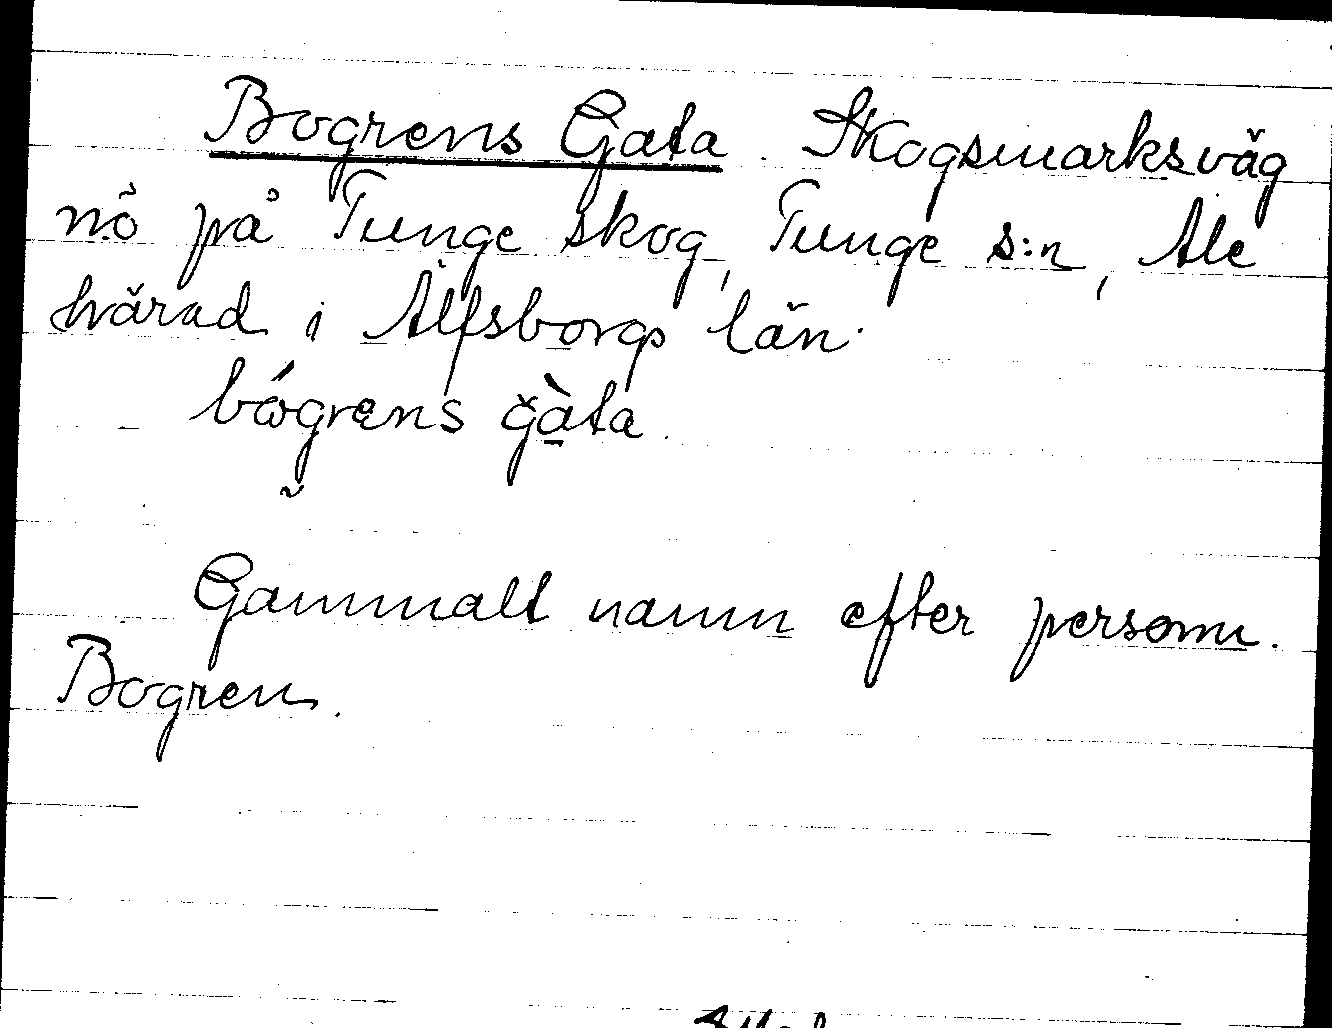 Bogrens Gata. Skogsmarksväg
nö på Tunge skog, Tunge s:n, Ale
härad i Älfsborgs län.
bógrens gàta
Gammalt namn efter personn.
Bogren.